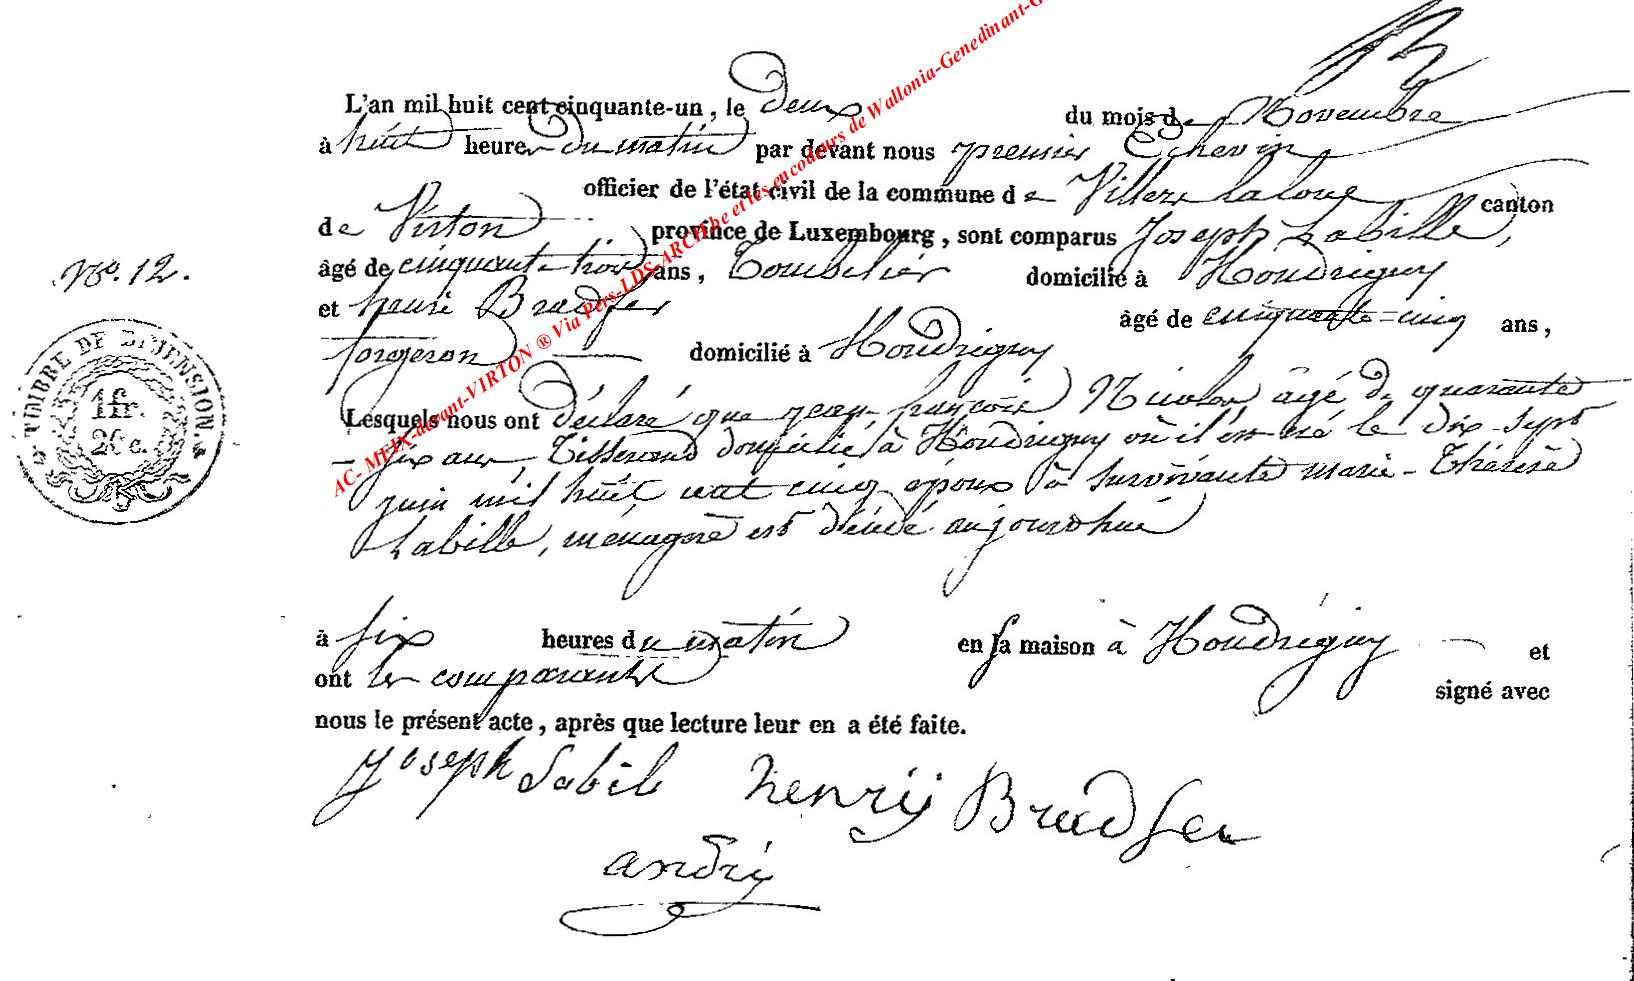 L'an mil huit cent cinquante-un, le deux du mois de Novembre
à huit heures du matin par devant nous premier Echevin
officier de l'état civil de la commune de Villers laloue canton
de Virton province de Luxembourg, sont comparus Joseph Labille,
âgé de cinquante trois ans, Tombelier domicilié à Houdrigny
et henri Bradfer âgé de cinquante-cinq ans,
forgeron domicilié à Houdrigny
Lesquels nous ont déclaré que jean-françois Nicolas âgé de quarante
-six ans, Tisserand domicilié à Houdrigny où il est né le dix-sept
juin mil huit cent cinq époux à survivante marie-Thérèse
Labille, ménagère est décédé aujourdhui
à six heures du matin en sa maison à Houdrigny et
ont les comparants signé avec
nous le présent acte, après que lecture leur en a été faite.
Joseph Labile henry Bradfer
andré
No. 12.
TIMBRE DE DIMENSION
1fr.
20c.
AC-MEIX-devant-VIRTON ® Via Pers-LDS-ARCH.be et les encodeurs de Wallonia-Genedinant-G